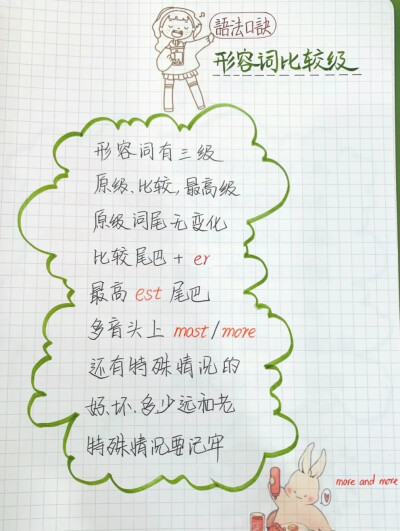 語法口訣
形容词比较级
形容词有三级
原级、比较,最高级
原级词尾无变化
比较尾巴 + er
最高 est 尾巴
多音头上 most/more
还有特殊情况的
好、坏、多少远和老
特殊情况要记牢
more and more